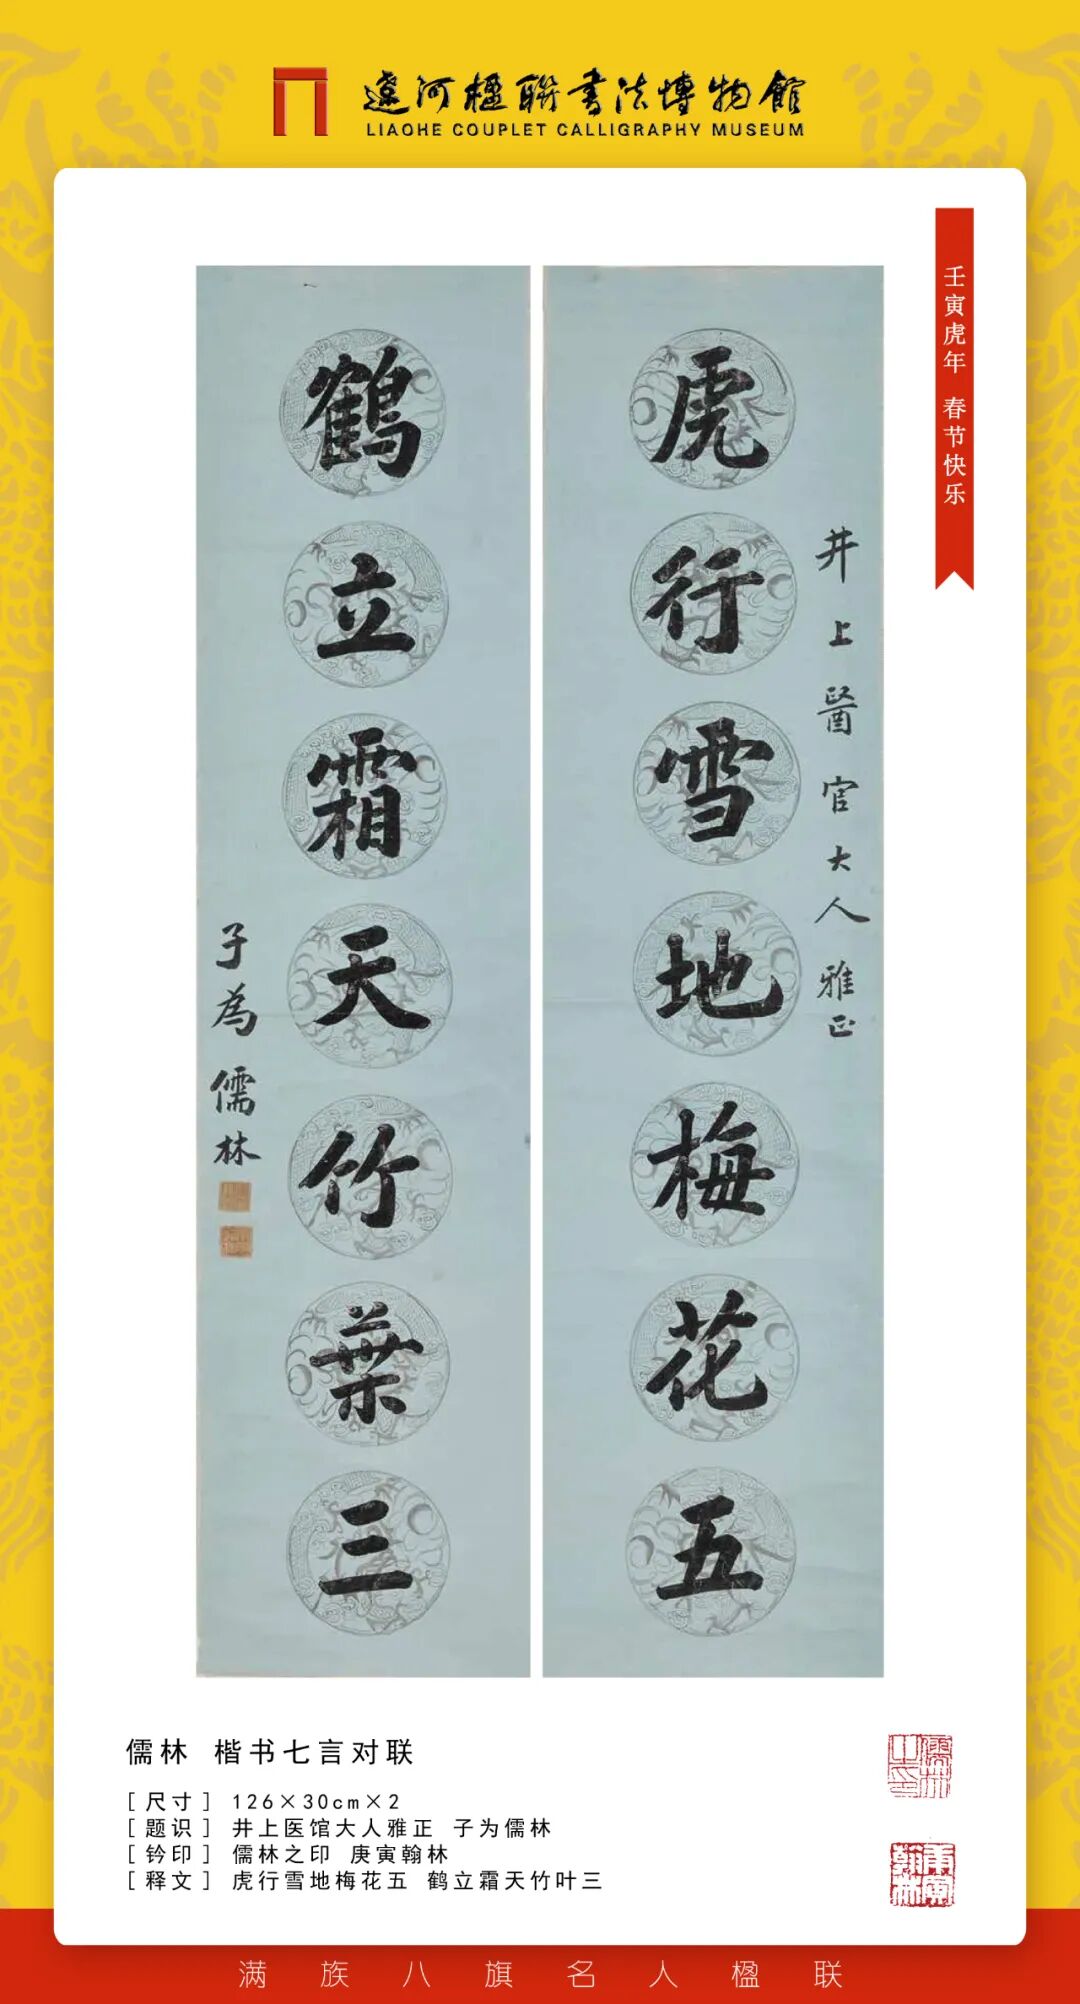 遼河楹聯書法博物館
LIAOHE COUPLET CALLIGRAPHY MUSEUM
壬寅虎年 春节快乐
井上醫官大人雅正
虎行雪地梅花五
鶴立霜天竹葉三
子為儒林
儒林 楷书七言对联
[尺寸] 126×30cm×2
[题识] 井上医馆大人雅正 子为儒林
[钤印] 儒林之印 庚寅翰林
[释文] 虎行雪地梅花五 鹤立霜天竹叶三
儒林之印
庚寅翰林
满族八旗名人楹联